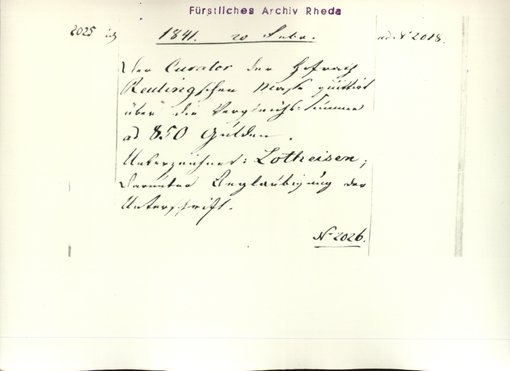 Fürstliches Archiv Rheda
2025 1841. 20 Febr. ad. N 2018.
Der Curator der Hofrath
Reuling'schen Masse quittirt
über die Vergleichs-Summe
ad 850 Gulden.
Unterzeichnet: Lotheisen;
darunter Beglaubigung der
Unterschrift.
N 2026.